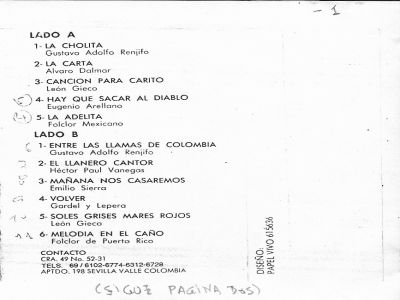 - 1
LADO A
1- LA CHOLITA
Gustavo Adolfo Renjifo
2- LA CARTA
Alvaro Dalmar
3- CANCION PARA CARITO
León Gieco
4- HAY QUE SACAR AL DIABLO
Eugenio Arellano
5- LA ADELITA
Folclor Mexicano
LADO B
1- ENTRE LAS LLAMAS DE COLOMBIA
Gustavo Adolfo Renjifo
2- EL LLANERO CANTOR
Héctor Paul Vanegas
3- MAÑANA NOS CASAREMOS
Emilio Sierra
4- VOLVER
Gardel y Lepera
5- SOLES GRISES MARES ROJOS
León Gieco
6- MELODIA EN EL CAÑO
Folclor de Puerto Rico
CONTACTO
CRA. 49 No. 52-31
TELS. 69/6102-6774-6312-6728
APTDO. 198 SEVILLA VALLE COLOMBIA
DISEÑO:
PAPEL VIVO 615636
(SIGUE PAGINA DOS)